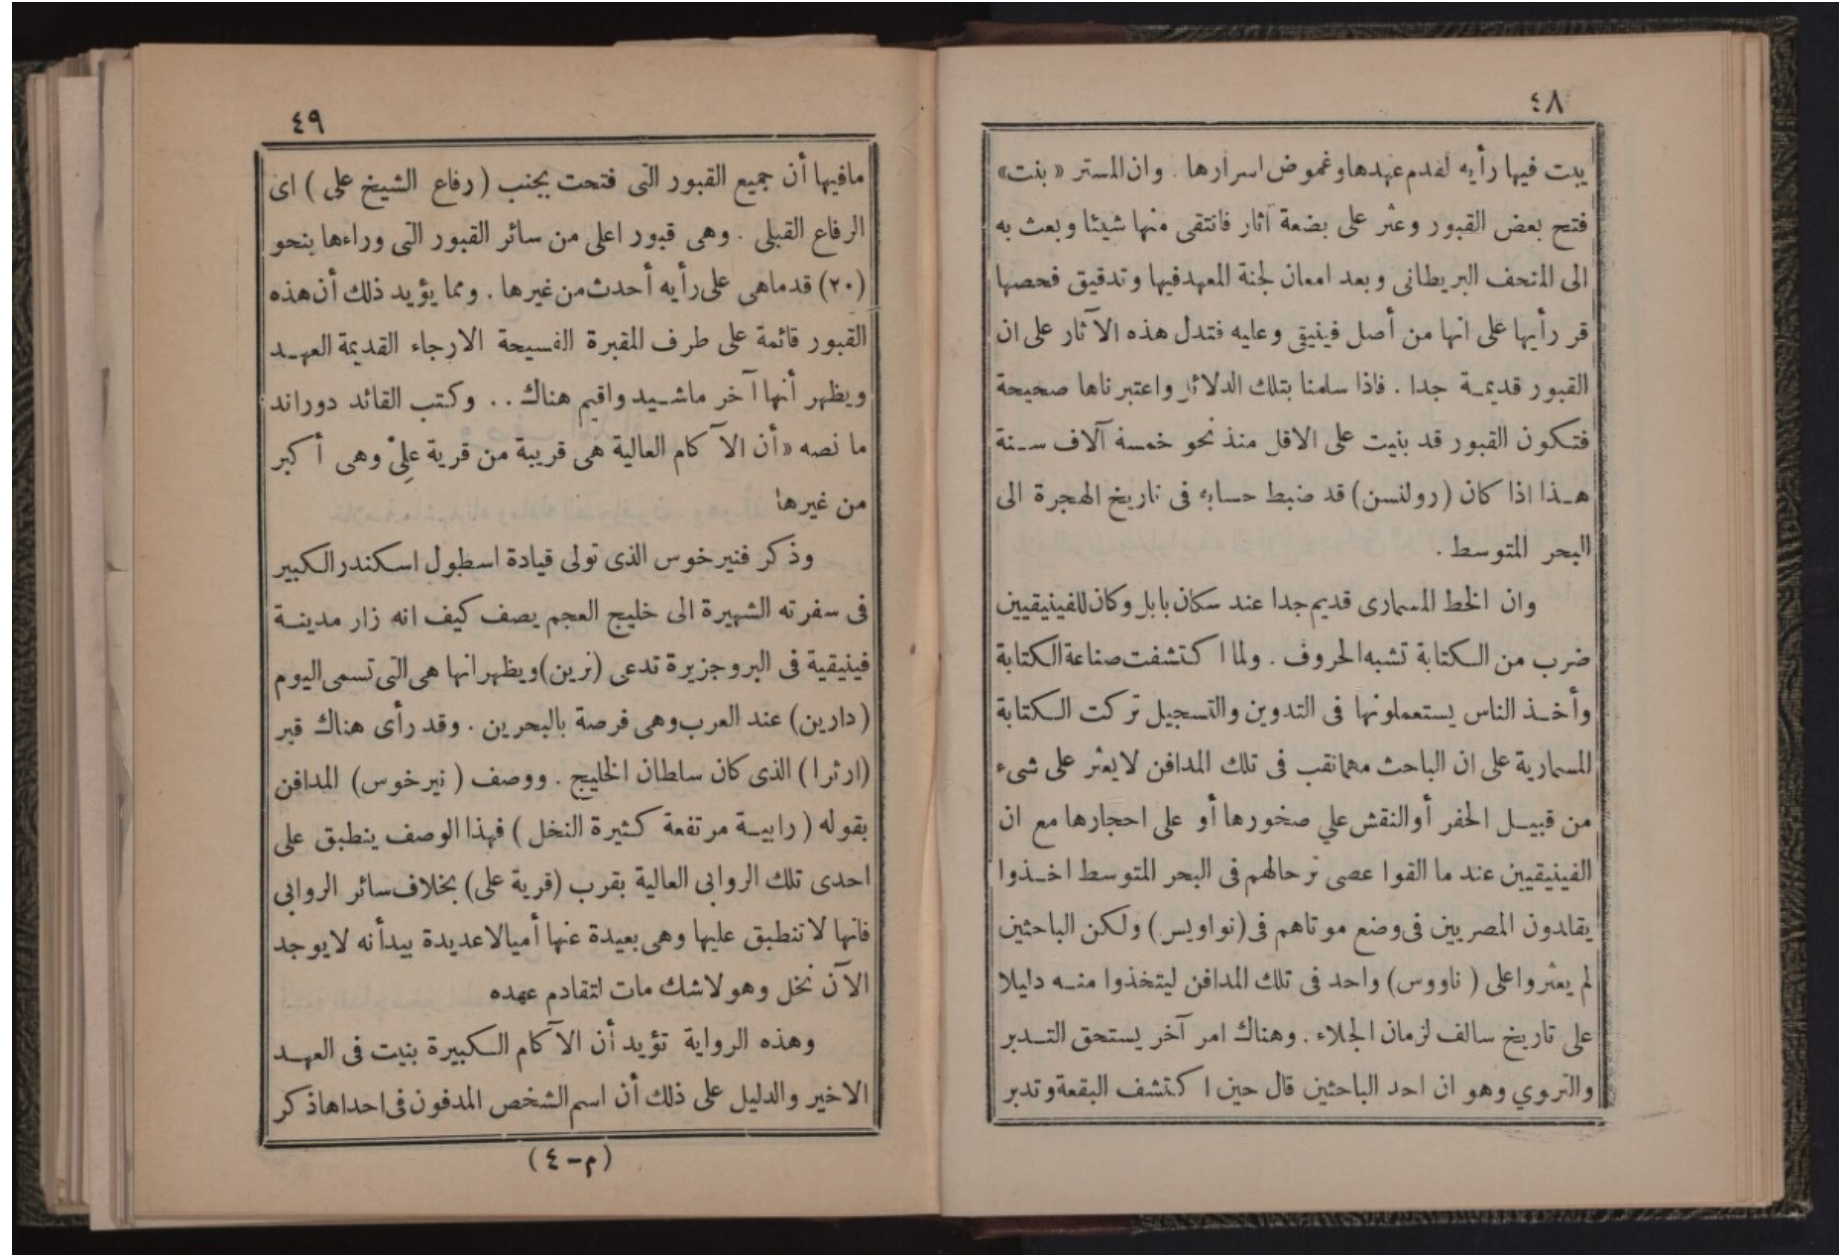 ٤٨
يبت فيها رأيه لقدم عهدها وغموض اسرارها . وان المستر « بنت »
فتح بعض القبور وعثر على بضعة آثار فانتقى منها شيئا وبعث به
الى المتحف البريطانى وبعد امعان لجنة المعهد فيها وتدقيق فحصها
قر رأيها على انها من أصل فينيقى وعليه فتدل هذه الآثار على ان
القبور قديمة جدا . فاذا سلمنا بتلك الدلائل واعتبرناها صحيحة
فتكون القبور قد بنيت على الاقل منذ نحو خمسة آلاف سنة
هذا اذا كان (رولنسن) قد ضبط حسابه فى تاريخ الهجرة الى
البحر المتوسط .
وان الخط المسمارى قديم جدا عند سكان بابل وكان للفينيقيين
ضرب من الكتابة تشبه الحروف . ولما اكتشفت صناعة الكتابة
وأخذ الناس يستعملونها فى التدوين والتسجيل تركت الكتابة
المسمارية على ان الباحث مهما نقب فى تلك المدافن لا يعثر على شىء
من قبيل الحفر أو النقش علي صخورها أو على احجارها مع ان
الفينيقيين عند ما القوا عصى ترحالهم فى البحر المتوسط اخذوا
يقلدون المصريين فى وضع موتاهم فى (نواويس) ولكن الباحثين
لم يعثروا على ( ناووس) واحد فى تلك المدافن ليتخذوا منه دليلا
على تاريخ سالف لزمان الجلاء . وهناك امر آخر يستحق التدبر
والتروي وهو ان احد الباحثين قال حين اكتشف البقعة وتدبر
٤٩
مافيها أن جميع القبور التى فتحت بجنب ( رفاع الشيخ على ) اى
الرفاع القبلى . وهى قبور اعلى من سائر القبور التى وراءها بنحو
(٢٠) قدما هى على رأيه أحدث من غيرها . ومما يؤيد ذلك أن هذه
القبور قائمة على طرف المقبرة الفسيحة الارجاء القديمة العهد
ويظهر أنها آخر ماشيد واقيم هناك .. وكتب القائد دوراند
ما نصه « أن الآكام العالية هى قريبة من قرية علِىْ وهى أكبر
من غيرها
وذكر فنيرخوس الذى تولى قيادة اسطول اسكندر الكبير
فى سفرته الشهيرة الى خليج العجم يصف كيف انه زار مدينة
فينيقية فى البر وجزيرة تدعى (نرين) ويظهر انها هى التى تسمى اليوم
(دارين) عند العرب وهى فرصة بالبحرين . وقد رأى هناك قبر
(ارثرا) الذى كان سلطان الخليج . ووصف ( نيرخوس) المدافن
بقوله ( رابية مرتفعة كثيرة النخل ) فهذا الوصف ينطبق على
احدى تلك الروابى العالية بقرب (قرية على) بخلاف سائر الروابى
فانها لا تنطبق عليها وهى بعيدة عنها أميالا عديدة بيد أنه لا يوجد
الآن نخل وهو لاشك مات لتقادم عهده
وهذه الرواية تؤيد أن الآكام الكبيرة بنيت فى العهد
الاخير والدليل على ذلك أن اسم الشخص المدفون فى احداها ذكر
(م-٤)